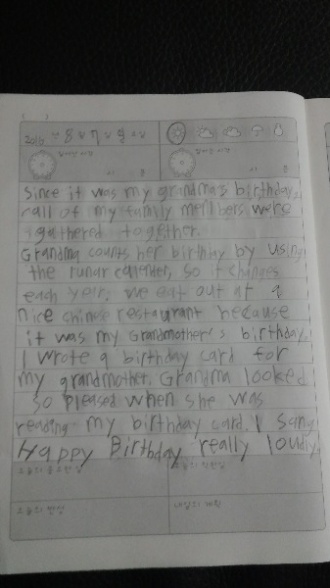 Since it was my grandma's birthday,
all of my family members were
gathered together.
Grandma counts her birthday by using
the runar calender, so it changes
each year, we eat out at a
nice chinese restaurant because
it was my Grandmother's birthday.
I wrote a birthday card for
my grandmother. Grandma looked
so pleased when she was
reading my birthday card. I sang
Happy Birthday really loudly.
오늘의 중요한일
오늘의 반성